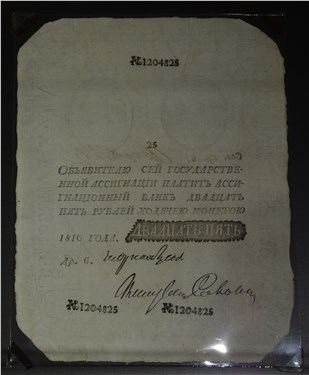 №1204825
25
Объявителю сей государстве-
нной ассигнаціи платитъ асси-
гнаціонный банкъ двадцать
пять рублей ходячею монетою
1810 года. ДВАДЦАТЬ ПЯТЬ
№1204825 №1204825